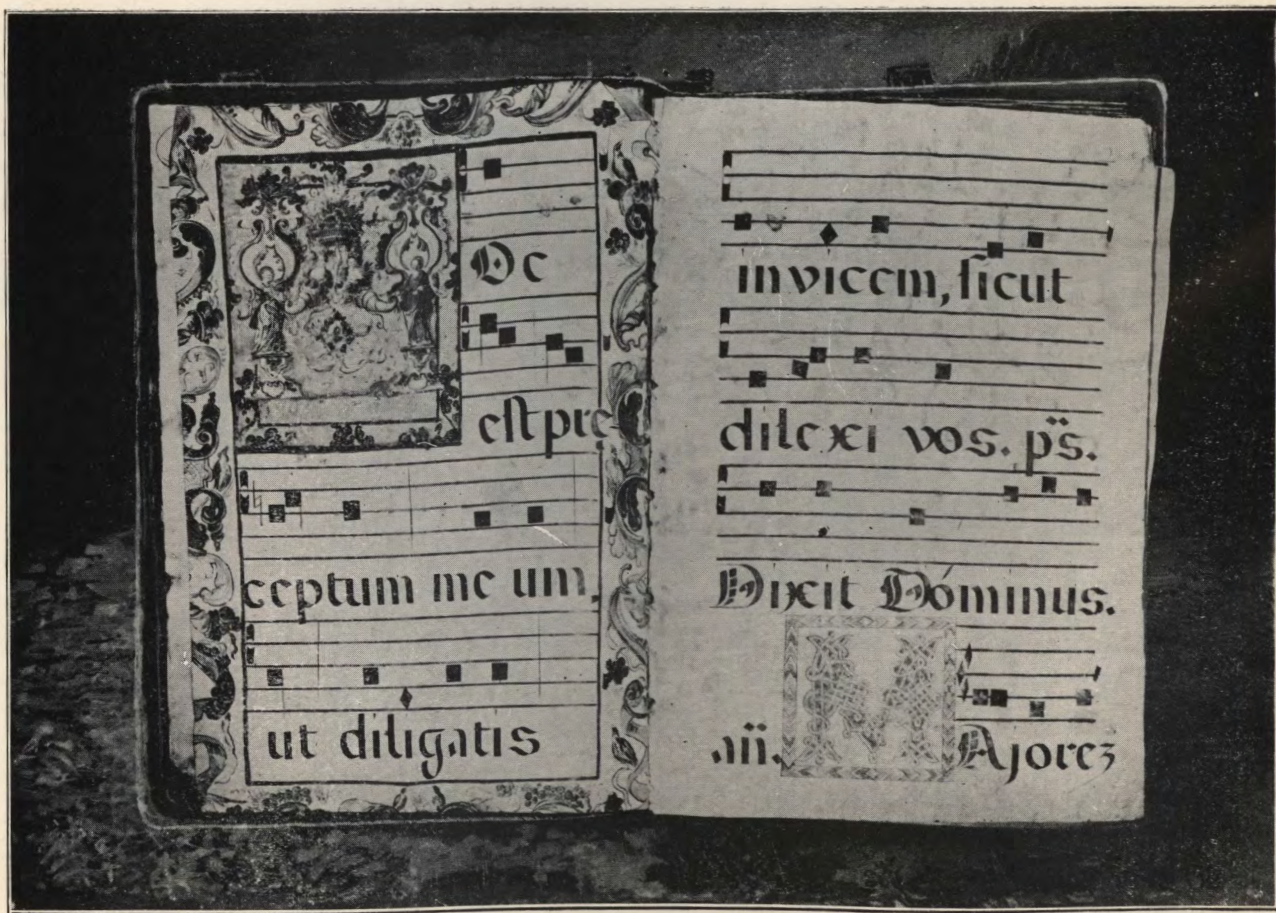 Oc
est pre-
ceptum me um,
ut diligatis
invicem, sicut
dilexi vos. p̈s.
Dixit Dóminus.
añ. M Ajorez